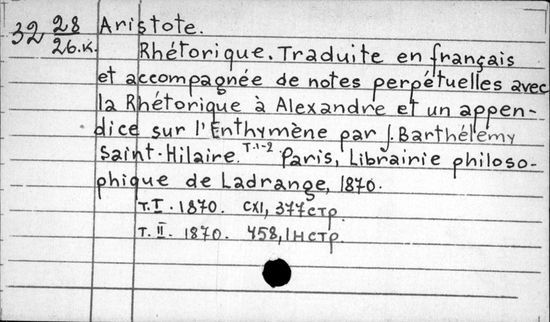 32 28 Aristote.
26.к. Rhétorique. Traduite en français
et accompagnée de notes perpétuelles avec
la Rhétorique à Alexandre et un appen-
dice sur l'Enthymène par J. Barthélemy
Saint-Hilaire. T.1-2. Paris, Librairie philoso-
phique de Ladrange, 1870.
т. I. 1870. CXI, 377 стр.
т. II. 1870. 458, 1 н стр.